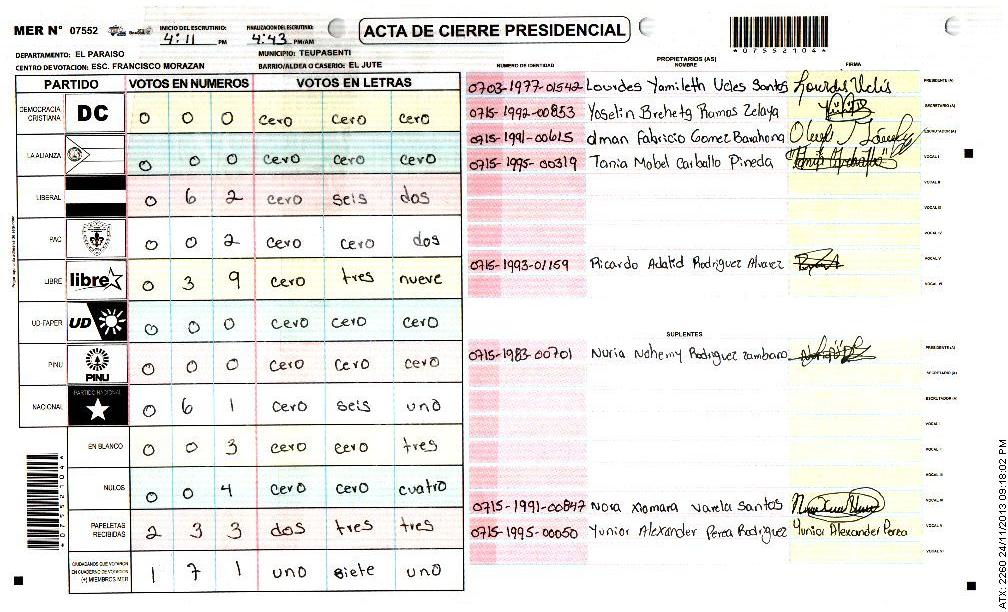 MER N° 07552
INICIO DEL ESCRUTINIO: 4:11 PM
FINALIZACION DEL ESCRUTINIO: 4:43 PM/AM
ACTA DE CIERRE PRESIDENCIAL
*07552104*
DEPARTAMENTO: EL PARAISO
MUNICIPIO: TEUPASENTI
CENTRO DE VOTACION: ESC. FRANCISCO MORAZAN
BARRIO/ALDEA O CASERIO: EL JUTE
PARTIDO VOTOS EN NUMEROS VOTOS EN LETRAS
DEMOCRACIA CRISTIANA DC 0 0 0 cero cero cero
LA ALIANZA 0 0 0 cero cero cero
LIBERAL 0 6 2 cero seis dos
PAC 0 0 2 cero cero dos
LIBRE libre 0 3 9 cero tres nueve
UD-FAPER UD 0 0 0 cero cero cero
PINU PINU 0 0 0 cero cero cero
NACIONAL PARTIDO NACIONAL 0 6 1 cero seis uno
EN BLANCO 0 0 3 cero cero tres
NULOS 0 0 4 cero cero cuatro
PAPELETAS RECIBIDAS 2 3 3 dos tres tres
CIUDADANOS QUE VOTARON EN CUADERNO DE VOTACION (+) MIEMBROS MER 1 7 1 uno siete uno
*07552104*
PROPIETARIOS (AS)
NUMERO DE IDENTIDAD NOMBRE FIRMA
0703-1977-01542 Lourdes Yamileth Ucles Santos PRESIDENTE (A)
0715-1992-00853 Yoselin Ramos Zelaya SECRETARIO (A)
0715-1991-00615 Fabricio Gomez Barahona ESCRUTADOR (A)
0715-1995-00319 Tania Mabel Carballo Pineda VOCAL I
VOCAL II
VOCAL III
VOCAL IV
0715-1993-01159 Ricardo Adalid Rodriguez Alvarez VOCAL V
VOCAL VI
SUPLENTES
0715-1983-00701 Nuria Nohemy Rodriguez Zambrano PRESIDENTE (A)
SECRETARIO (A)
ESCRUTADOR (A)
VOCAL I
VOCAL II
VOCAL III
0715-1991-00847 Nora Xiomara Varela Santos VOCAL IV
0715-1995-00050 Yunior Alexander Perea Rodriguez Yunior Alexander Perea VOCAL V
VOCAL VI
ATX: 2260 24/11/2013 09:18:02 PM